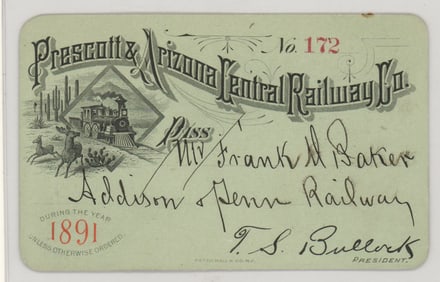 No. 172
Prescott & Arizona Central Railway Co.
Pass
Mr Frank M Baker
Addison & Penn Railway
DURING THE YEAR
1891
UNLESS OTHERWISE ORDERED.
T. S. Bullock
PRESIDENT.